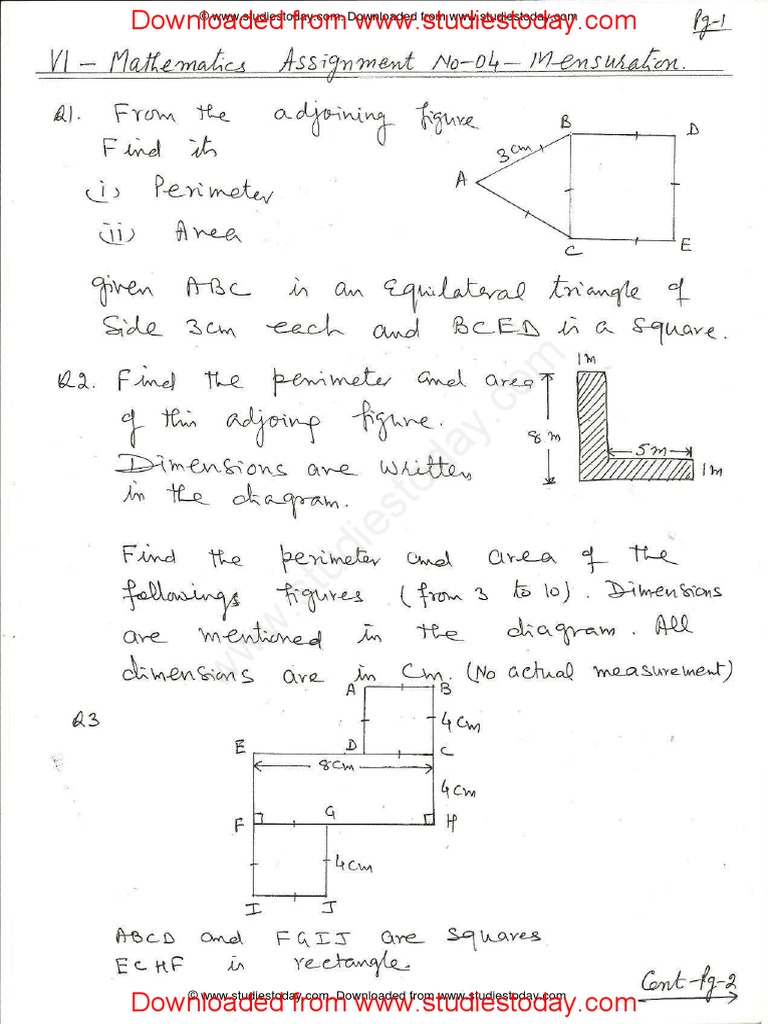 Downloaded from studiestoday.com
© www.studiestoday.com. Downloaded from www.studiestoday.com
Pg-1
VI - Mathematics Assignment No-04 - Mensuration.
Q1. From the adjoining figure
Find its
(i) Perimeter
(ii) Area
B
D
3cm
A
C
E
given ABC is an Equilateral triangle of
Side 3cm each and BCED is a square.
Q2. Find the perimeter and area
of this adjoing figure.
Dimensions are written
in the diagram.
1m
8m
5m
1m
www.studiestoday.com
Find the perimeter and area of the
followings figures (from 3 to 10). Dimensions
are mentioned in the diagram. All
dimensions are in Cm. (No actual measurement)
Q3
A
B
4cm
E
D
C
8cm
4cm
F
G
H
4cm
I
J
ABCD and FGIJ are squares
ECHF is rectangle.
Cont-Pg-2
© www.studiestoday.com. Downloaded from www.studiestoday.com
Downloaded from studiestoday.com